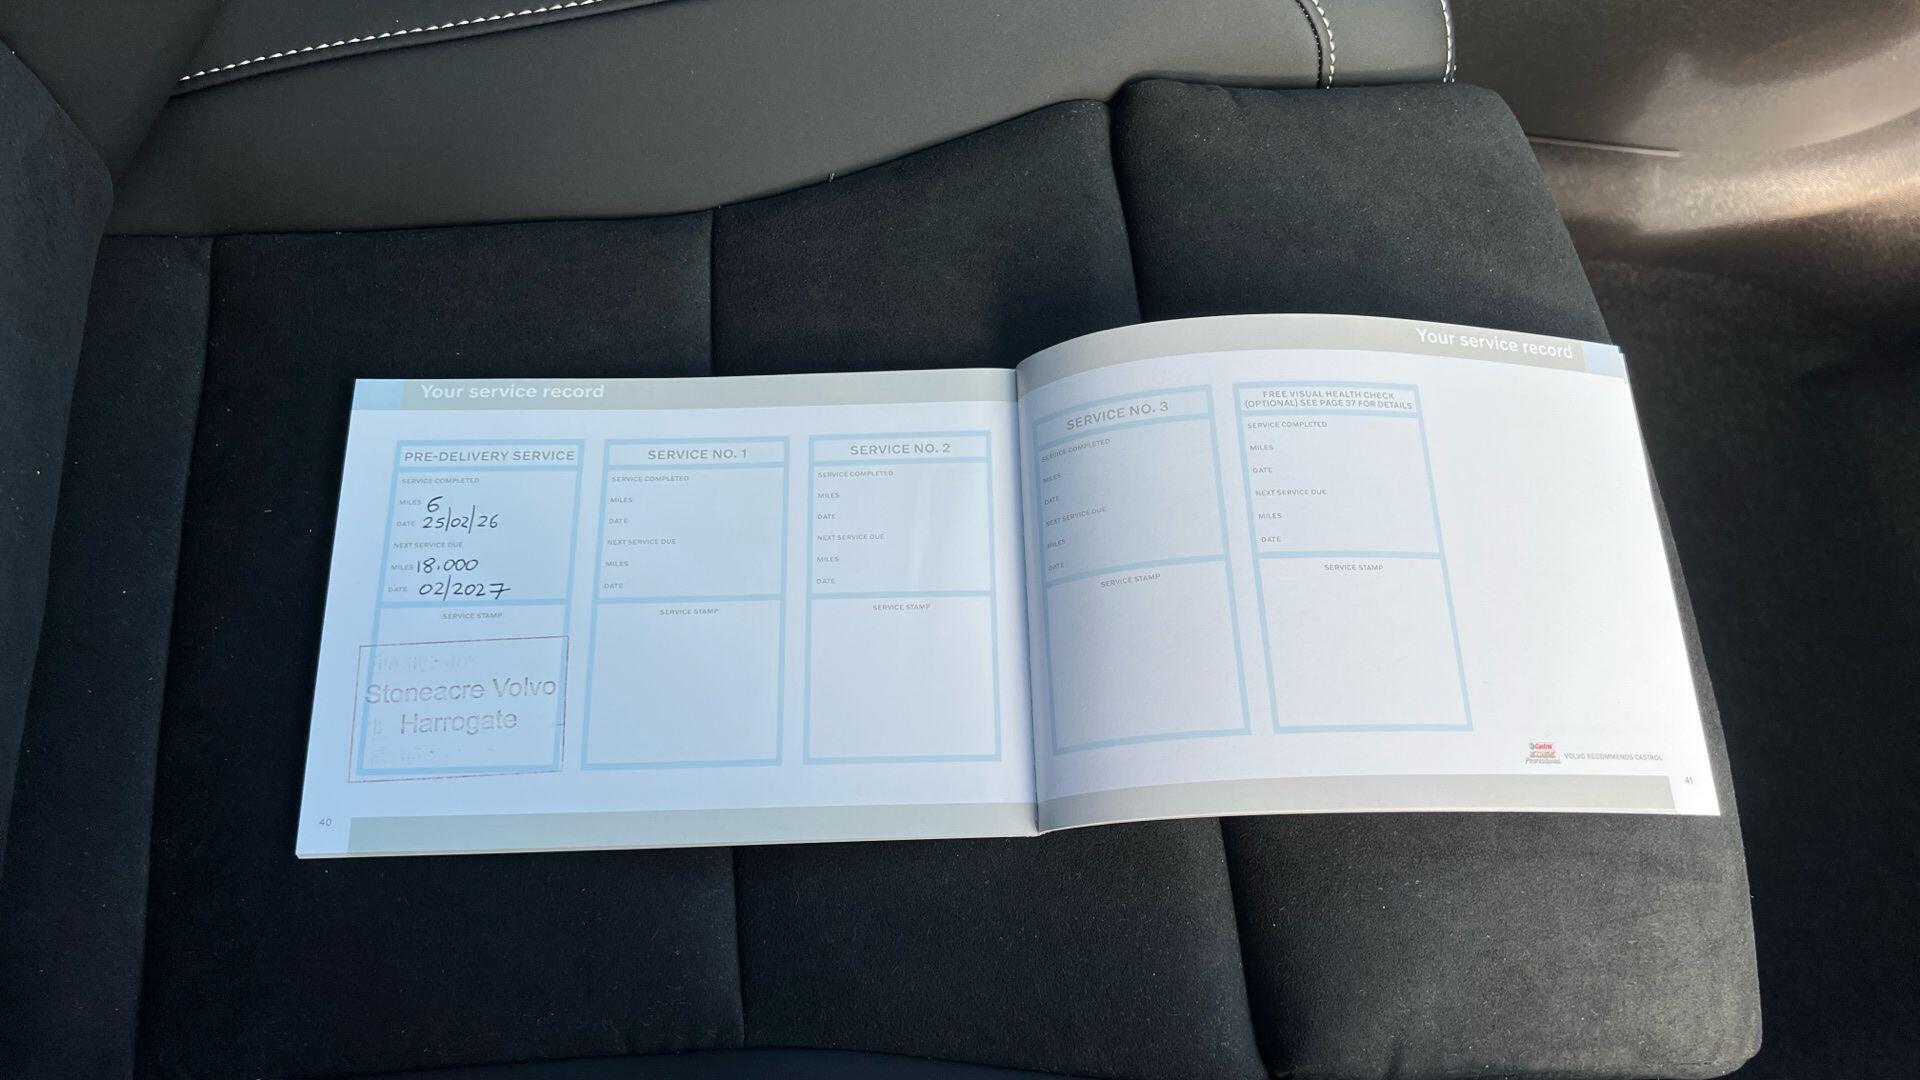 Your service record
PRE-DELIVERY SERVICE
SERVICE COMPLETED
MILES 6
DATE 25/02/26
NEXT SERVICE DUE
MILES 18.000
DATE 02/2027
SERVICE STAMP
Stoneacre Volvo
Harrogate
SERVICE NO. 1
SERVICE COMPLETED
MILES
DATE
NEXT SERVICE DUE
MILES
DATE
SERVICE STAMP
SERVICE NO. 2
SERVICE COMPLETED
MILES
DATE
NEXT SERVICE DUE
MILES
DATE
SERVICE STAMP
40
Your service record
SERVICE NO. 3
SERVICE COMPLETED
MILES
DATE
NEXT SERVICE DUE
MILES
DATE
SERVICE STAMP
FREE VISUAL HEALTH CHECK
(OPTIONAL) SEE PAGE 37 FOR DETAILS
SERVICE COMPLETED
MILES
DATE
NEXT SERVICE DUE
MILES
DATE
SERVICE STAMP
Castrol
Professional
VOLVO RECOMMENDS CASTROL
41